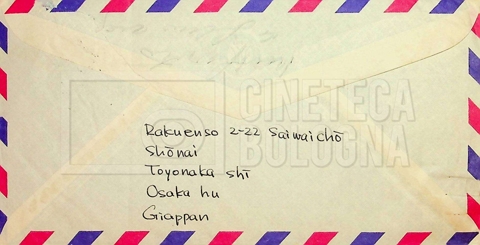 CINETECA
BOLOGNA
Rakuenso 2-22 Saiwaichō
Shōnai
Toyonaka shi
Osaka hu
Giappan